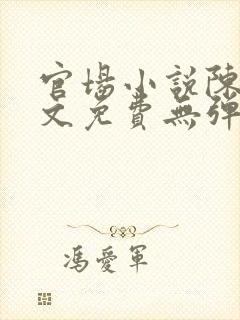 官場小說陳
文免費無彈
馮愛軍